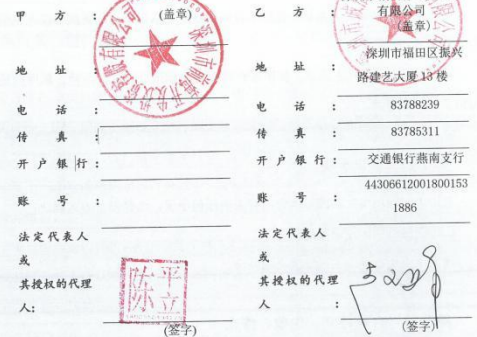 甲 方 :
(盖章)
地 址 :
电 话 :
传 真 :
开 户 银 行 :
账 号 :
法定代表人
或
其授权的代理
人:
(签字)
乙 方 :
有限公司
(盖章)
地 址 :
深圳市福田区振兴
路建艺大厦 13 楼
电 话 :
83788239
传 真 :
83785311
开 户 银 行 :
交通银行燕南支行
账 号 :
44306612001800153
1886
法定代表人
或
其授权的代理
人 :
(签字)